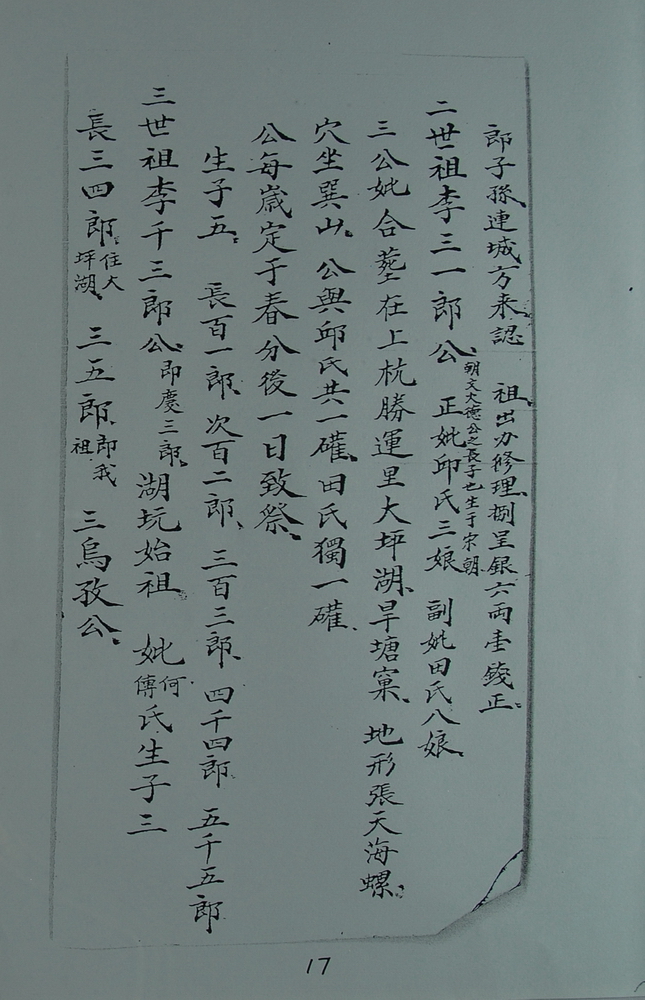 郎子孫連城方来認 祖出力修理捌呈銀六両壹錢正
二世祖李三一郎公朝文大德公之長子也生于宋朝 正妣邱氏三娘 副妣田氏八娘
三公妣合塟在上杭勝運里大坪湖旱塘窠 地形張天海螺
穴坐巽山 公與邱氏共一礶田氏獨一礶
公每歲定于春分後一日致祭
生子五 長百一郎 次百二郎 三百三郎 四千四郎 五千五郎
三世祖李千三郎公即慶三郎 湖坑始祖 妣何傳氏生子三
長三四郎住大坪湖 三五郎即我祖 三烏孜公
17